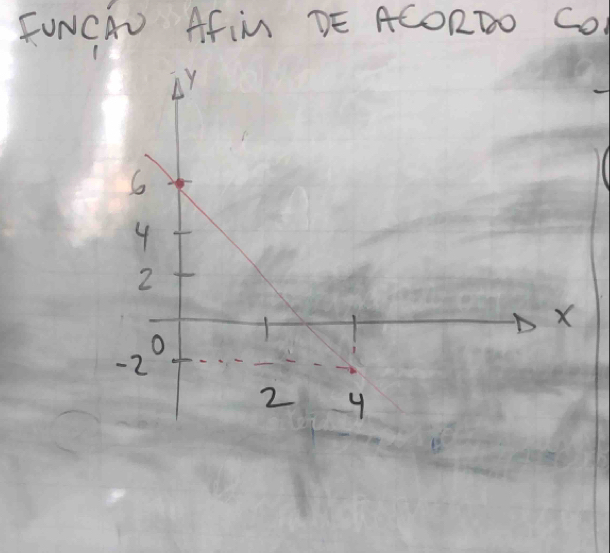 FUNÇÃO AFIM DE ACORDO CO
Y
6
4
2
0
X
-2
2 4